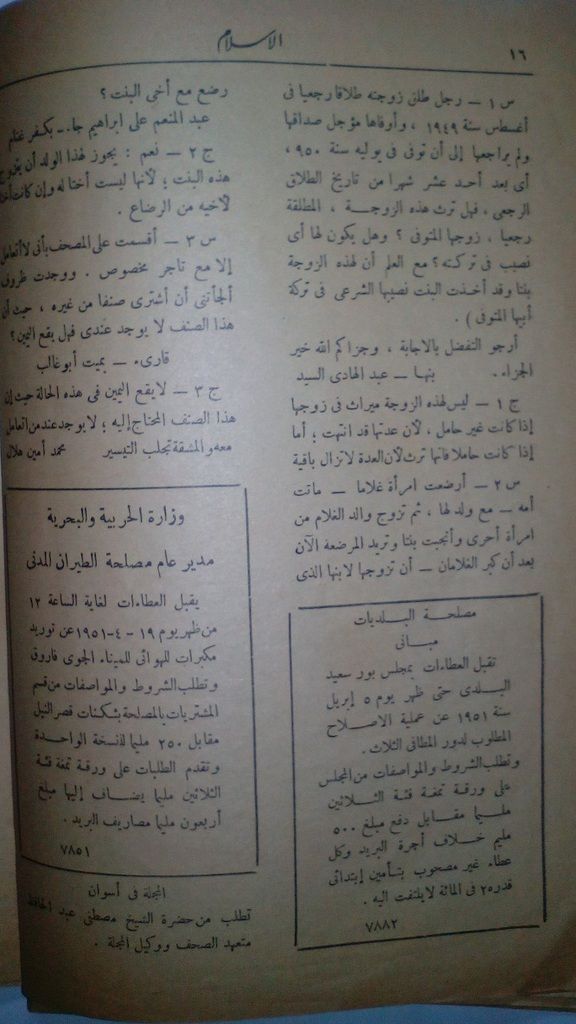 ١٦
الاسلام
س ١ — رجل طلق زوجته طلاقا رجعيا فى
أغسطس سنة ١٩٤٩ ، وأوفاها مؤجل صداقها
ولم يراجعها إلى أن توفى فى يوليه سنة ٩٥٠ ،
أى بعد أحد عشر شهرا من تاريخ الطلاق
الرجعى ، فهل ترث هذه الزوجة ، المطلقة
رجعيا ، زوجها المتوفى ؟ وهل يكون لها أى
نصيب فى تركته ؟ مع العلم أن لهذه الزوجة
بنتا وقد أخذت البنت نصيبها الشرعى فى تركة
أبيها المتوفى ) .
أرجو التفضل بالاجابة ، وجزاكم الله خير
الجزاء . بنها — عبد الهادى السيد
ج ١ — ليس لهذه الزوجة ميراث فى زوجها
إذا كانت غير حامل ، لأن عدتها قد انتهت ؛ أما
إذا كانت حاملا فانها ترث لأن العدة لاتزال باقية
س ٢ — أرضعت امرأة غلاما — ماتت
أمه — مع ولد لها ، ثم تزوج والد الغلام من
امرأة أخرى وأنجبت بنتا وتريد المرضعه الآن
بعد أن كبر الغلامان — أن تزوجها لابنها الذى
رضع مع أخى البنت ؟
عبد المنعم على ابراهيم جا.. ـ بكفر غنام
ج ٢ — نعم : يجوز لهذا الولد أن يتزوج
هذه البنت ؛ لأنها ليست أختا له وإن كانت أختا
لأخيه من الرضاع .
س ٣ — أقسمت على المصحف بأنى لا أتعامل
إلا مع تاجر مخصوص . ووجدت ظروف
ألجأتنى أن أشترى صنفا من غيره ، حيث أن
هذا الصنف لا يوجد عندى فهل يقع اليمين ؟
قارىء — بميت أبو غالب
ج ٣ — لا يقع اليمين فى هذه الحالة حيث إن
هذا الصنف المحتاج إليه ؛ لا يوجد عند من اتعامل
معه والمشقة تجلب التيسير محمد أمين هلال
مصلحة البلديات
مبانى
تقبل العطاءات بمجلس بور سعيد
البلدى حتى ظهر يوم ٥ إبريل
سنة ١٩٥١ عن عملية الاصلاح
المطلوب لدور المطافى الثلاث .
وتطلب الشروط والمواصفات من المجلس
على ورقة تمغة فئة الثلاثين
مليما مقابل دفع مبلغ ٥٠٠
مليم خلاف أجرة البريد وكل
عطاء غير مصحوب بتأمين إبتدائى
قدره ٢ فى المائة لايلتفت اليه .
٧٨٨٢
وزارة الحربية والبحرية
مدير عام مصلحة الطيران المدنى
يقبل العطاءات لغاية الساعة ١٢
من ظهر يوم ١٩ - ٤ - ١٩٥١ عن توريد
مكبرات للهوائى للميناء الجوى فاروق
وتطلب الشروط والمواصفات من قسم
المشتريات بالمصلحة بشكنات قصر النيل
مقابل ٢٥٠ مليما للنسخة الواحدة
وتقدم الطلبات على ورقة تمغة فئة
الثلاثين مليما يضاف إليها مبلغ
أربعون مليما مصاريف البريد .
٧٨٥١
المجلة فى أسوان
تطلب من حضرة الشيخ مصطفى عبد الحافظ
متعهد الصحف ووكيل المجلة .